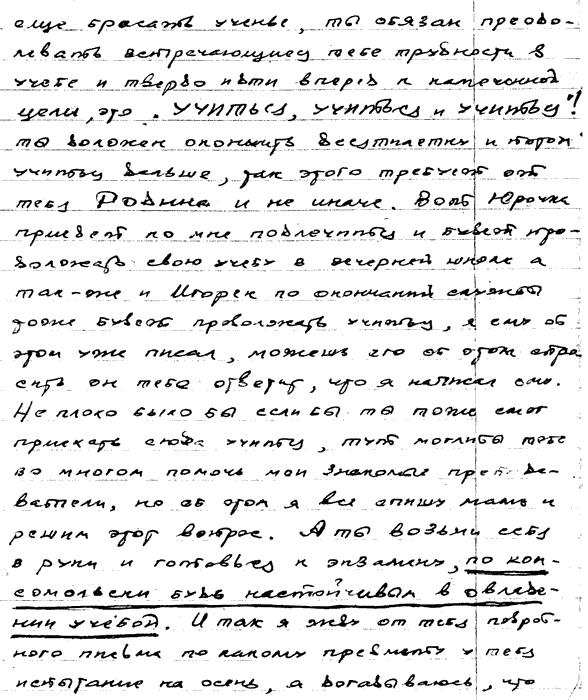 еще бросать ученье, ты обязан преодо-
левать встречающиеся тебе трудности в
учебе и твердо идти вперед к намеченной
цели, это. УЧИТЬСЯ, УЧИТЬСЯ и УЧИТЬСЯ!
ты должен окончить десятилетку и потом
учиться дальше, так этого требует от
тебя РОДИНА и не иначе. Вот Юрочка
приедет ко мне подлечиться и будет про-
должать свою учебу в вечерней школе а
так-же и Игорек по окончании службы
тоже будет продолжать учиться, я ему об
этом уже писал, можешь его об этом спро
сить он тебе ответит, что я написал ему.
Не плохо было бы если бы ты тоже смог
приехать сюда учиться, тут моглибы тебе
во многом помочь мои знакомые препода-
ватели, но об этом я все спишу маме и
решим этот вопрос. А ты возьми себя
в руки и готовься к экзамену, по ком-
сомольски будь настойчивым в овладе-
нии учёбой. И так я жду от тебя подроб-
ного письма по какому предмету у тебя
испытание на осень, я догадываюсь, что